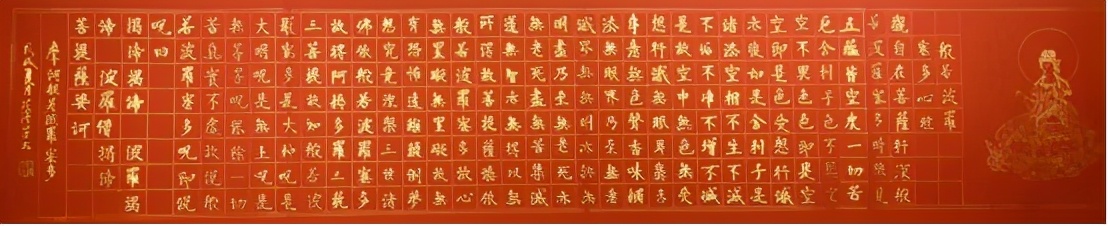 般若波羅
蜜多心經
觀自在菩薩行深般
若波羅蜜多時照見
五蘊皆空度一切苦
厄舍利子色不異空
空不異色色即是空
空即是色受想行識
亦復如是舍利子是
諸法空相不生不滅
不垢不淨不增不減
是故空中無色無受
想行識無眼耳鼻舌
身意無色聲香味觸
法無眼界乃至無意
識界無無明亦無無
明盡乃至無老死亦
無老死盡無苦集滅
道無智亦無得以無
所得故菩提薩埵依
般若波羅蜜多故心
無罣礙無罣礙故無
有恐怖遠離顛倒夢
想究竟涅槃三世諸
佛依般若波羅蜜多
故得阿耨多羅三藐
三菩提故知般若波
羅蜜多是大神呪是
大明呪是無上呪是
無等等呪能除一切
苦真實不虛故說般
若波羅蜜多呪即說
呪曰
揭諦揭諦 波羅揭
諦 波羅僧揭諦
菩提薩婆訶